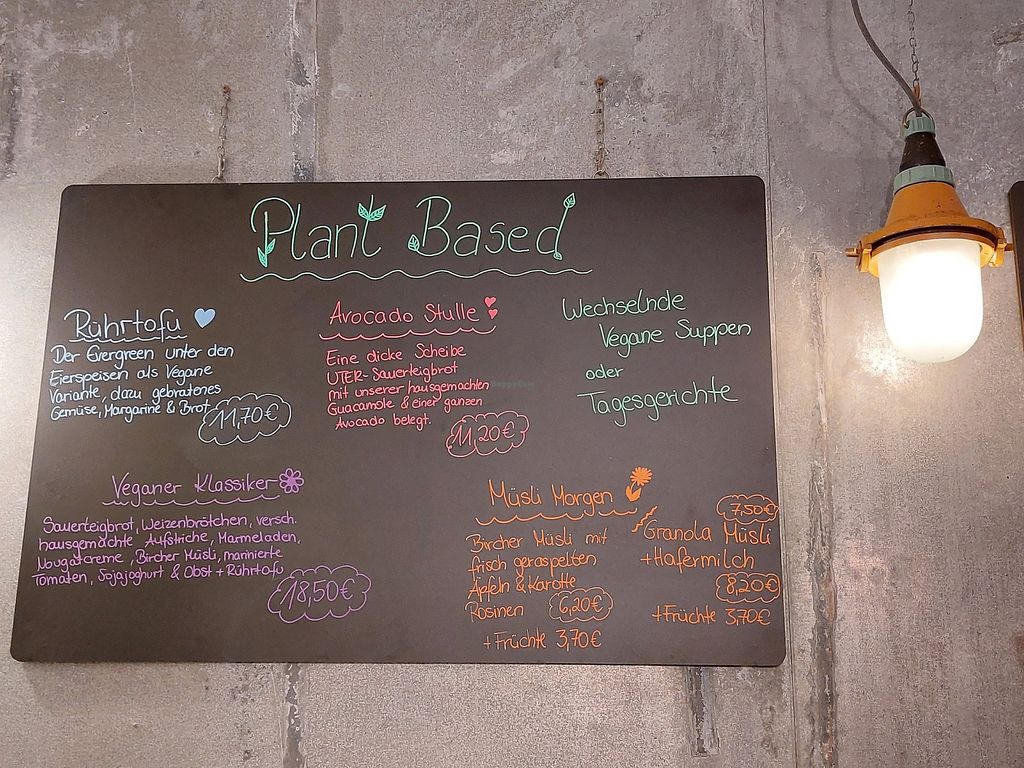 Plant Based
Rührtofu
Der Evergreen unter den
Eierspeisen als Vegane
Variante, dazu gebratenes
Gemüse, Margarine & Brot
11,70€
Avocado Stulle
Eine dicke Scheibe
UTER-Sauerteigbrot
mit unserer hausgemachten
Guacamole & einer ganzen
Avocado belegt.
11,20€
Wechselnde
Vegane Suppen
oder
Tagesgerichte
Veganer Klassiker
Sauerteigbrot, Weizenbrötchen, versch.
hausgemachte Aufstriche, Marmeladen,
Nougatcreme, Bircher Müsli, marinierte
Tomaten, Sojajoghurt & Obst + Rührtofu
18,50€
Müsli Morgen
Bircher Müsli mit
frisch geraspelten
Äpfeln & Karotte
Rosinen 6,20€
+Früchte 3,70€
7,50€
Granola Müsli
+Hafermilch
8,20€
+Früchte 3,70€